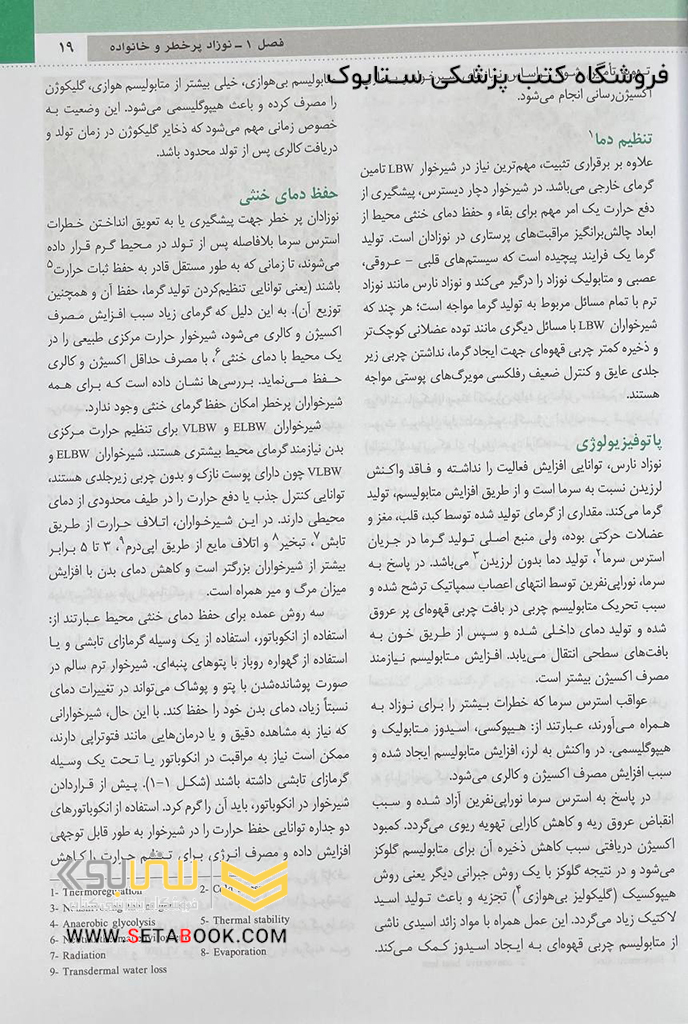 فصل ۱ ـ نوزاد پرخطر و خانواده
۱۹
فروشگاه کتب پزشکی ستابوک
اکسیژن‌رسانی انجام می‌شود.
تنظیم دما۱
علاوه بر برقراری تثبیت، مهم‌ترین نیاز در شیرخوار LBW تامین
گرمای خارجی می‌باشد. در شیرخوار دچار دیسترس، پیشگیری از
دفع حرارت یک امر مهم برای بقاء و حفظ دمای خنثی محیط از
ابعاد چالش‌برانگیز مراقبت‌های پرستاری در نوزادان است. تولید
گرما یک فرایند پیچیده است که سیستم‌های قلبی - عروقی،
عصبی و متابولیک نوزاد را درگیر می‌کند و نوزاد نارس مانند نوزاد
ترم با تمام مسائل مربوط به تولید گرما مواجه است؛ هر چند که
شیرخواران LBW با مسائل دیگری مانند توده عضلانی کوچک‌تر
و ذخیره کمتر چربی قهوه‌ای جهت ایجاد گرما، نداشتن چربی زیر
جلدی عایق و کنترل ضعیف رفلکسی مویرگ‌های پوستی مواجه
هستند.
پاتوفیزیولوژی
نوزاد نارس، توانایی افزایش فعالیت را نداشته و فاقد واکنش
لرزیدن نسبت به سرما است و از طریق افزایش متابولیسم، تولید
گرما می‌کند. مقداری از گرمای تولید شده توسط کبد، قلب، مغز و
عضلات حرکتی بوده، ولی منبع اصلی تولید گرما در جریان
استرس سرما۲، تولید دما بدون لرزیدن۳ می‌باشد. در پاسخ به
سرما، نوراپی‌نفرین توسط انتهای اعصاب سمپاتیک ترشح شده و
سبب تحریک متابولیسم چربی در بافت چربی قهوه‌ای پر عروق
شده و تولید دمای داخلی شده و سپس از طریق خون به
بافت‌های سطحی انتقال می‌یابد. افزایش متابولیسم نیازمند
مصرف اکسیژن بیشتر است.
عواقب استرس سرما که خطرات بیشتر را برای نوزاد به
همراه می‌آورند، عبارتند از: هیپوکسی، اسیدوز متابولیک و
هیپوگلیسمی. در واکنش به لرز، افزایش متابولیسم ایجاد شده و
سبب افزایش مصرف اکسیژن و کالری می‌شود.
در پاسخ به استرس سرما نوراپی‌نفرین آزاد شده و سبب
انقباض عروق ریه و کاهش کارایی تهویه ریوی می‌گردد. کمبود
اکسیژن دریافتی سبب کاهش ذخیره آن برای متابولیسم گلوکز
می‌شود و در نتیجه گلوکز با یک روش جبرانی دیگر یعنی روش
هیپوکسیک (گلیکولیز بی‌هوازی۴) تجزیه و باعث تولید اسید
لاکتیک زیاد می‌گردد. این عمل همراه با مواد زائد اسیدی ناشی
از متابولیسم چربی قهوه‌ای به ایجاد اسیدوز کمک می‌کند.
متابولیسم بی‌هوازی، خیلی بیشتر از متابولیسم هوازی، گلیکوژن
را مصرف کرده و باعث هیپوگلیسمی می‌شود. این وضعیت به
خصوص زمانی مهم می‌شود که ذخایر گلیکوژن در زمان تولد و
دریافت کالری پس از تولد محدود باشد.
حفظ دمای خنثی
نوزادان پر خطر جهت پیشگیری یا به تعویق انداختن خطرات
استرس سرما بلافاصله پس از تولد در محیط گرم قرار داده
می‌شوند، تا زمانی که به طور مستقل قادر به حفظ ثبات حرارت۵
باشند (یعنی توانایی تنظیم‌کردن تولید گرما، حفظ آن و همچنین
توزیع آن). به این دلیل که گرمای زیاد سبب افزایش مصرف
اکسیژن و کالری می‌شود، شیرخوار حرارت مرکزی طبیعی را در
یک محیط با دمای خنثی۶، با مصرف حداقل اکسیژن و کالری
حفظ می‌نماید. بررسی‌ها نشان داده است که برای همه
شیرخواران پرخطر امکان حفظ گرمای خنثی وجود ندارد.
شیرخواران ELBW و VLBW برای تنظیم حرارت مرکزی
بدن نیازمند گرمای محیط بیشتری هستند. شیرخواران ELBW و
VLBW چون دارای پوست نازک و بدون چربی زیرجلدی هستند،
توانایی کنترل جذب یا دفع حرارت را در طیف محدودی از دمای
محیطی دارند. در این شیرخواران، اتلاف حرارت از طریق
تابش۷، تبخیر۸ و اتلاف مایع از طریق اپی‌درم۹، ۳ تا ۵ برابر
بیشتر از شیرخواران بزرگتر است و کاهش دمای بدن با افزایش
میزان مرگ و میر همراه است.
سه روش عمده برای حفظ دمای خنثی محیط عبارتند از:
استفاده از انکوباتور، استفاده از یک وسیله گرمازای تابشی و یا
استفاده از گهواره روباز با پتوهای پنبه‌ای. شیرخوار ترم سالم در
صورت پوشانده‌شدن با پتو و پوشاک می‌تواند در تغییرات دمای
نسبتاً زیاد، دمای بدن خود را حفظ کند. با این حال، شیرخوارانی
که نیاز به مشاهده دقیق و یا درمان‌هایی مانند فتوتراپی دارند،
ممکن است نیاز به مراقبت در انکوباتور یا تحت یک وسیله
گرمازای تابشی داشته باشند (شکل ۱-۱). پیش از قراردادن
شیرخوار در انکوباتور، باید آن را گرم کرد. استفاده از انکوباتورهای
دو جداره توانایی حفظ حرارت را در شیرخوار به طور قابل توجهی
افزایش داده و مصرف انرژی برای تنظیم حرارت را کاهش
1- Thermoregulation
4- Anaerobic glycolysis
5- Thermal stability
7- Radiation
8- Evaporation
9- Transdermal water loss
ستابوک
WWW.SETABOOK.COM